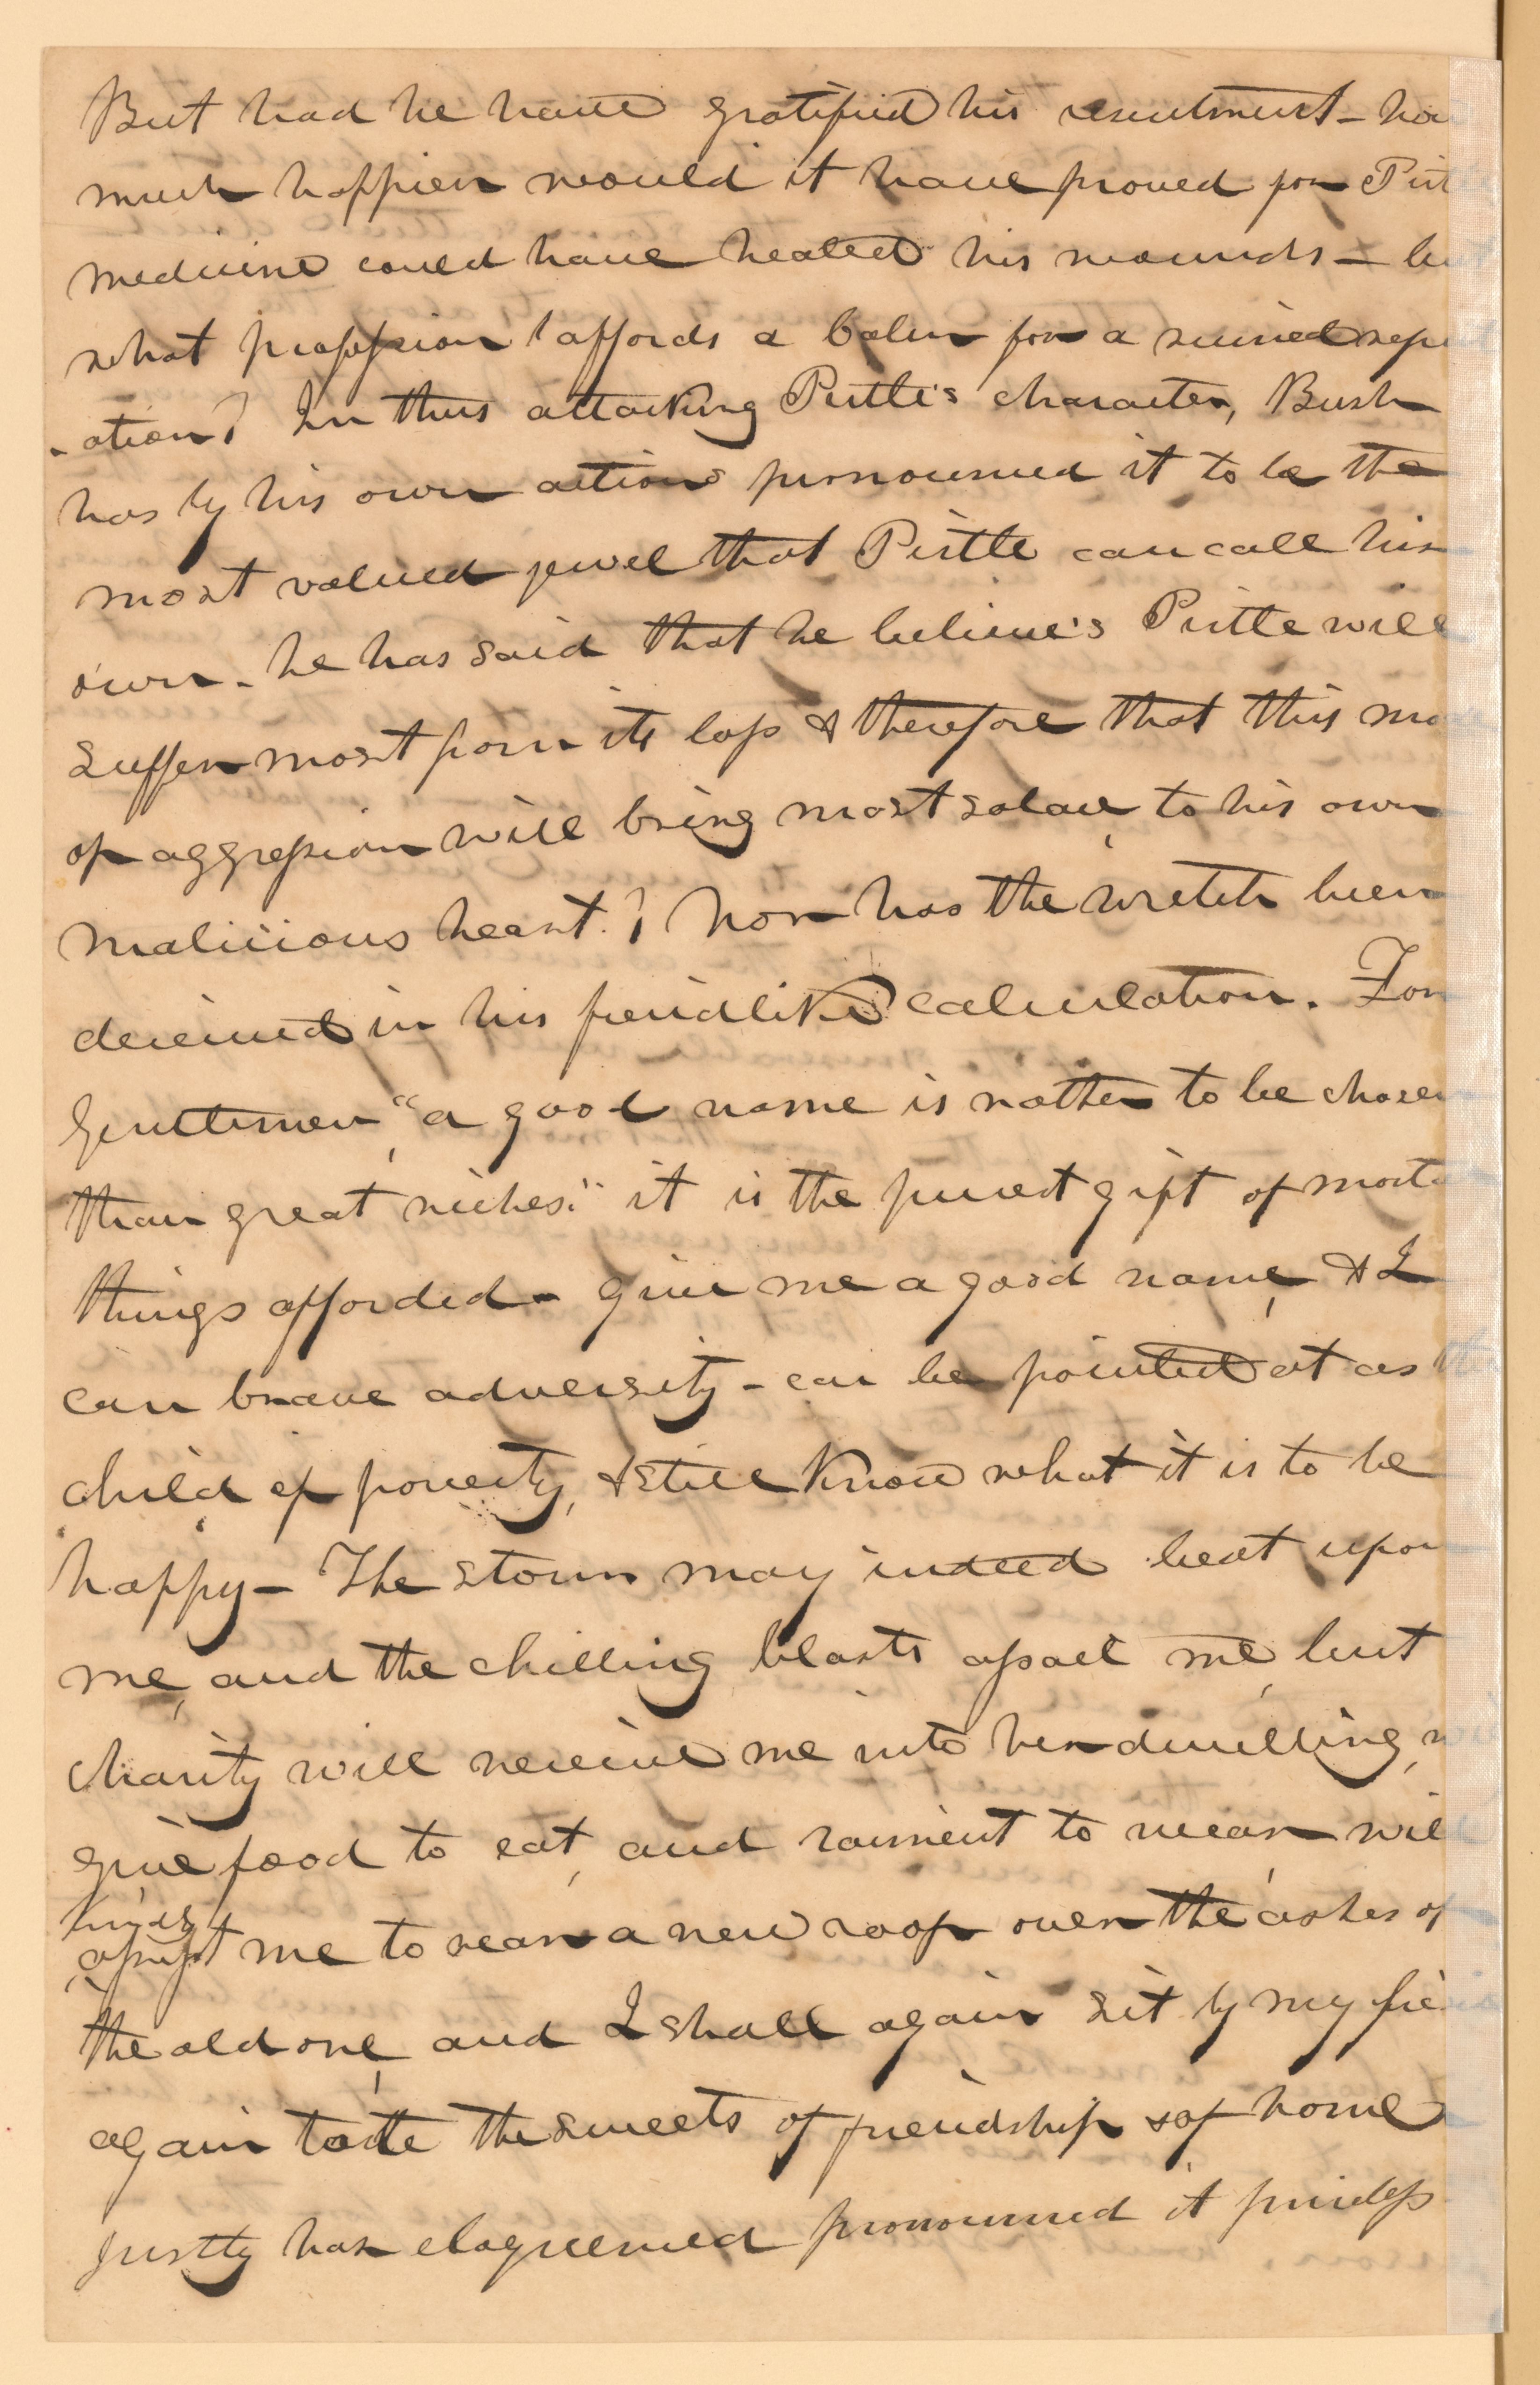 But had he have gratified his resentment - how
much happier would it have proved for Pirt
medicine could have healed his wounds - but
what profession affords a balm for a ruined repu
-ation? In thus attacking Pirtle's character, Bush
has by his own actions pronounced it to be the
most valued jewel that Pirtle can call his
own - he has said that he believe's Pirtle will
suffer most from its loss & therefore that this mo
of aggression will bring most solace, to his own
malicious heart.? Nor has the wretch been
deceived in his fiendlike calculation. For
Gentlemen, "a good name is rather to be chosen
than great riches." it is the purest gift of mort
things afforded - give me a good name, & I
can brave adversity - can be pointed at as the
child of poverty, & still know what it is to be
happy - The storm may indeed beat upon
me, and the chilling blasts assail me, but
charity will receive me into her dwelling, w
give food to eat, and raiment to wear, will
assist me to rear a new roof over the ashes of
the old one, and I shall again sit by my fi
again taste the sweets of friendship & of home
justly has eloquence pronounced it priceless